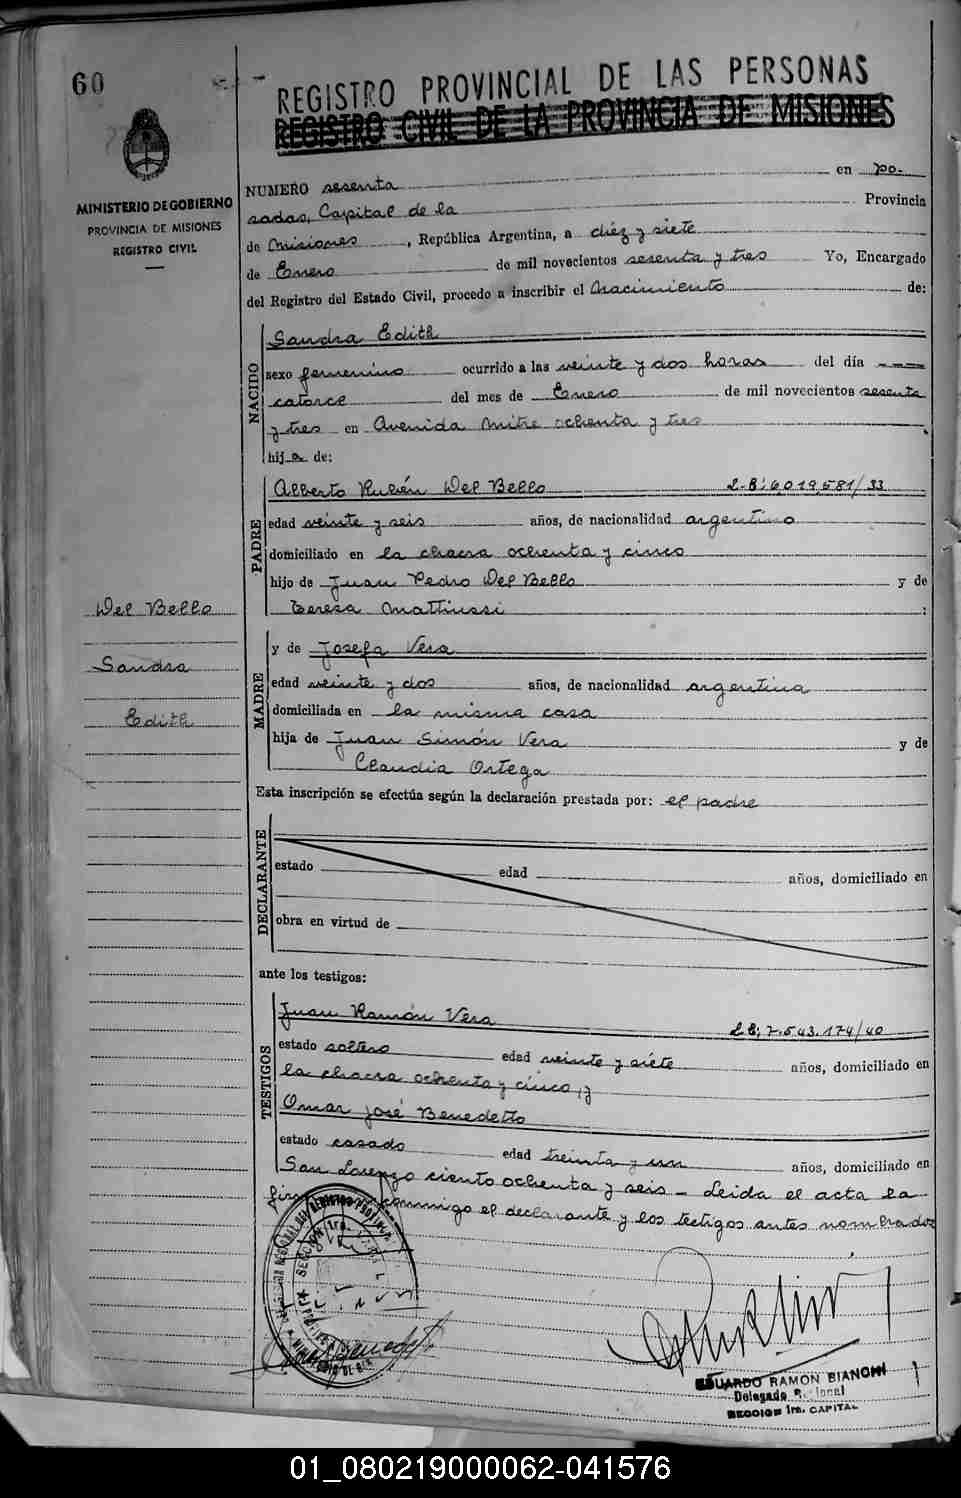 60
REGISTRO PROVINCIAL DE LAS PERSONAS
REGISTRO CIVIL DE LA PROVINCIA DE MISIONES
MINISTERIO DE GOBIERNO
PROVINCIA DE MISIONES
REGISTRO CIVIL
NUMERO sesenta en Po-
sadas, Capital de la Provincia
de Misiones, República Argentina, a diez y siete
de Enero de mil novecientos sesenta y tres Yo, Encargado
del Registro del Estado Civil, procedo a inscribir el Nacimiento de:
NACIDO
Sandra Edith
sexo femenino ocurrido a las veinte y dos horas del día
catorce del mes de Enero de mil novecientos sesenta
y tres en Avenida Mitre ochenta y tres
hija de:
PADRE
Alberto Rubén Del Bello L-B: 6,019,581/33
edad veinte y seis años, de nacionalidad argentino
domiciliado en la chacra ochenta y cinco
hijo de Juan Pedro Del Bello y de
Teresa Mattiussi ;
Del Bello
Sandra
Edith
MADRE
y de Josefa Vera
edad veinte y dos años, de nacionalidad argentina
domiciliada en la misma casa
hija de Juan Simón Vera y de
Claudia Ortega
Esta inscripción se efectúa según la declaración prestada por: el padre
DECLARANTE
estado edad años, domiciliado en
obra en virtud de
ante los testigos:
TESTIGOS
Juan Ramón Vera L B; 7.543.174/40
estado soltero edad veinte y siete años, domiciliado en
la chacra ochenta y cinco, y
Omar José Benedetto
estado casado edad treinta y un años, domiciliado en
San Lorenzo ciento ochenta y seis - Leida el acta la
conmigo el declarante y los testigos antes nombrados
EDUARDO RAMON BIANCHI
Delegado
SECCION 1ra. CAPITAL
01_080219000062-041576